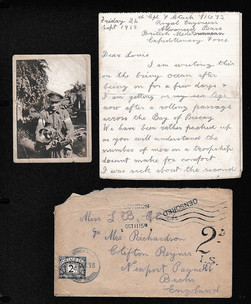 Friday 24th
Sept 1915
Royal Engineers
Advanced Base
British Mediterranean
Expeditionary Force
Dear Louie
I am writing this
on the briny ocean after
being on for a few days &
I am getting my sea legs
now after a rolling passage
across the Bay of Biscay
We have been rather packed up
as you will understand the
numbers of men on a troopship
doesnt make for comfort
I was sick about the second
CENSORED
Miss L B
Mrs Richardson
Clifton Reynes
Newport Pagnell
Bucks
England
2